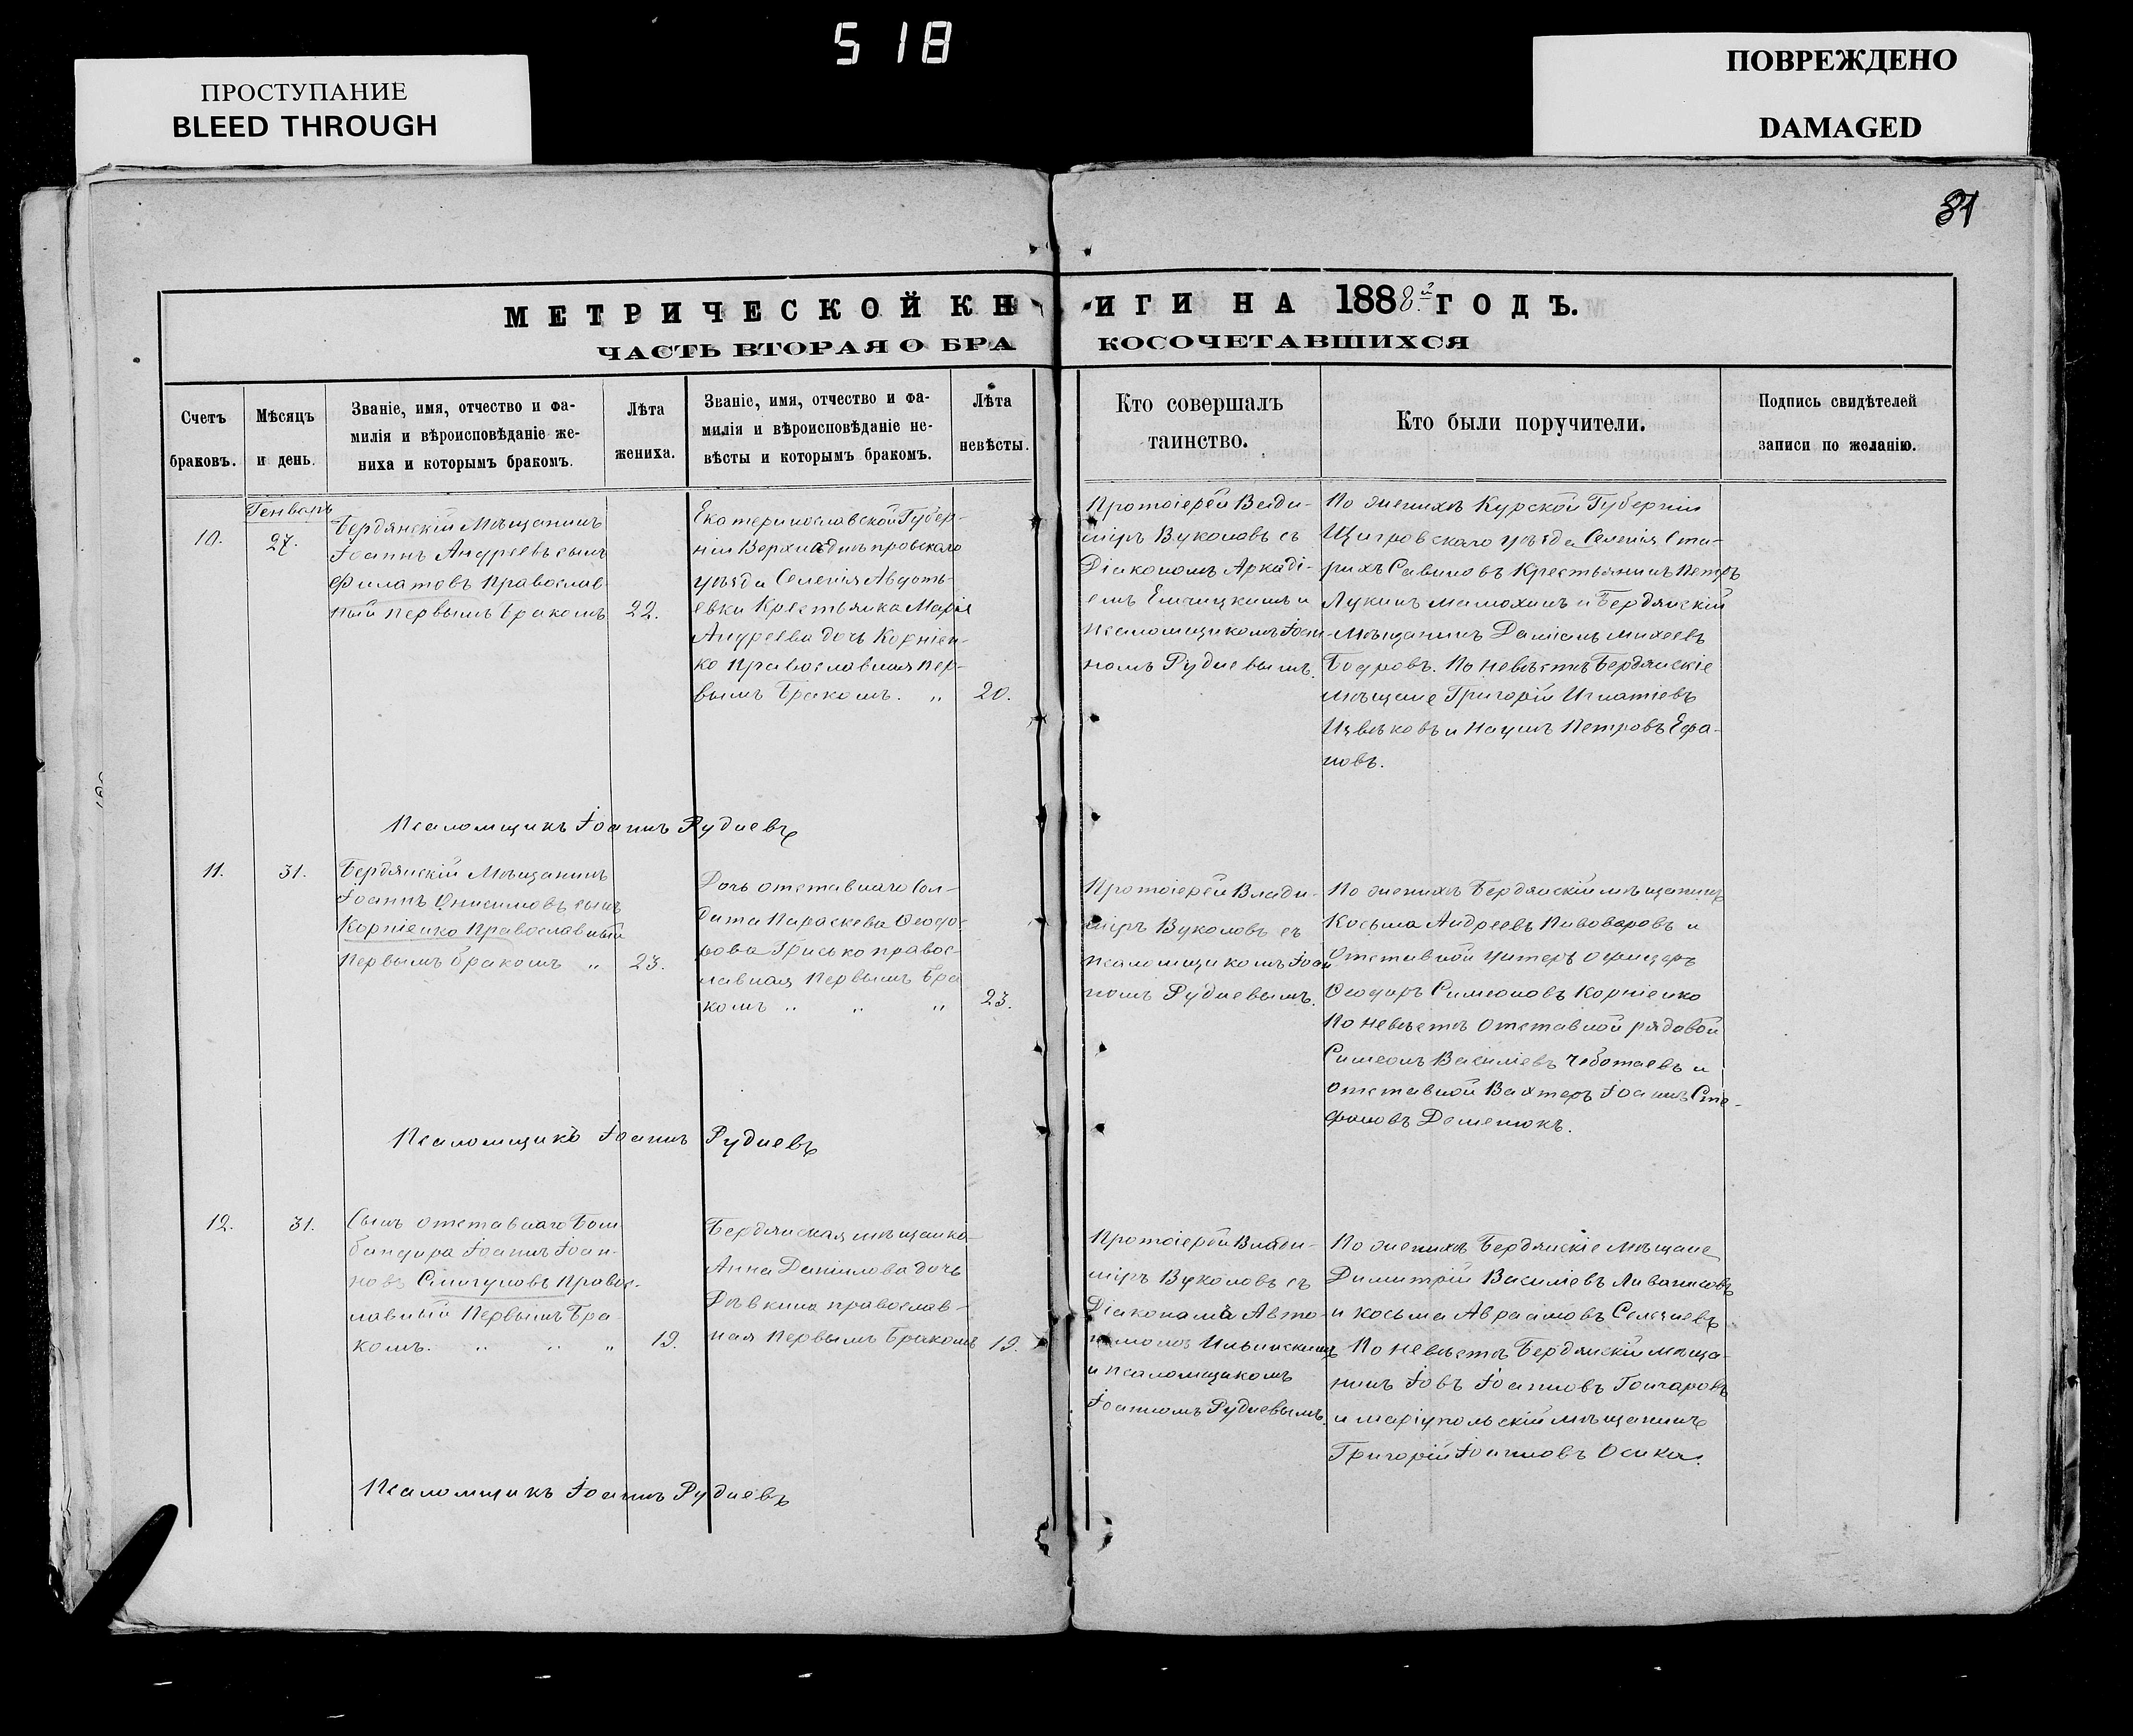 518
ПРОСТУПАНИЕ
BLEED THROUGH
ПОВРЕЖДЕНО
DAMAGED
81
МЕТРИЧЕСКОЙ КНИГИ НА 1888й ГОДЪ.
ЧАСТЬ ВТОРАЯ О БРАКОСОЧЕТАВШИХСЯ
Счетъ
браковъ.
Мѣсяцъ
и день.
Званіе, имя, отчество и фа-
милія и вѣроисповѣданіе же-
ниха и которымъ бракомъ.
Лѣта
жениха.
Званіе, имя, отчество и фа-
милія и вѣроисповѣданіе не-
вѣсты и которымъ бракомъ.
Лѣта
невѣсты.
Кто совершалъ
таинство.
Кто были поручители.
Подпись свидѣтелей
записи по желанію.
10.
Генварь
27.
Бердянскій Мѣщанинъ
Іоаннъ Андреевъ сынъ
Филатовъ Православ
ный первымъ бракомъ
22.
Екатеринославской Губер-
ніи Верхнѣднѣпровскаго
уѣзда Селенія Авдоть-
евки Крестьянка Марія
Андреева дочь Корніен-
ко Православная пер-
вымъ бракомъ. „
20.
Протоіерей Влади-
міръ Вуколовъ съ
Діакономъ Аркаді-
емъ
и
Псаломщикомъ Іоан-
номъ Рудневымъ.
По женихѣ Курской Губерніи
Щигровскаго уѣзда Селенія Ста-
рихъ Савиновъ Крестьянинъ Петръ
Лукинъ Малюхинъ и Бердянскій
Мѣщанинъ Даміанъ Михеевъ
Бодровъ. По невѣстѣ Бердянскіе
Мѣщане Григорій Игнатіевъ
и Наумъ Петровъ Ефа-
новъ.
Псаломщикъ Іоаннъ Рудневъ
11.
31.
Бердянскій Мѣщанинъ
Іоаннъ Онисимовъ сынъ
Корніенко Православный
Первымъ бракомъ „
23.
Дочь отставнаго Сол-
дата Параскева Ѳеодо-
рова Грисько правос-
лавная Первымъ бра
комъ „ „ „
23.
Протоіерей Влади-
міръ Вуколовъ съ
Псаломщикомъ Іоан
номъ Рудневымъ.
По женихѣ Бердянскій мѣщанинъ
Косьма Андреевъ Пивоваровъ и
Отставной унтеръ офицеръ
Ѳеодоръ Симеоновъ Корніенко
По невѣстѣ Отставной рядовой
Симеонъ Василіевъ Чеботаевъ и
отставной Вахтеръ Іоаннъ Сте-
фановъ Деменюкъ.
Псаломщикъ Іоаннъ Рудневъ
12.
31.
Сынъ отставнаго Бом
бандира Іоаннъ Іоан-
новъ Смыгуновъ Правос-
лавный Первымъ бра-
комъ. „ „ „
19.
Бердянская мѣщанка
Анна Даніилова дочь
Дѣвкина православ-
ная Первымъ бракомъ
19.
Протоіерей Влади-
міръ Вуколовъ съ
Діакономъ Авто-
номомъ Ильинскимъ
и Псаломщикомъ
Іоанномъ Рудневымъ.
По женихѣ Бердянскіе Мѣщане
Димитрій Василіевъ Ливансовъ
и Косьма Авраамовъ Селезневъ
По невѣстѣ Бердянскій мѣща-
нинъ Іовъ Іоанновъ Гончаровъ
и маріупольскій мѣщанинъ
Григорій Іоанновъ Осика.
Псаломщикъ Іоаннъ Рудневъ